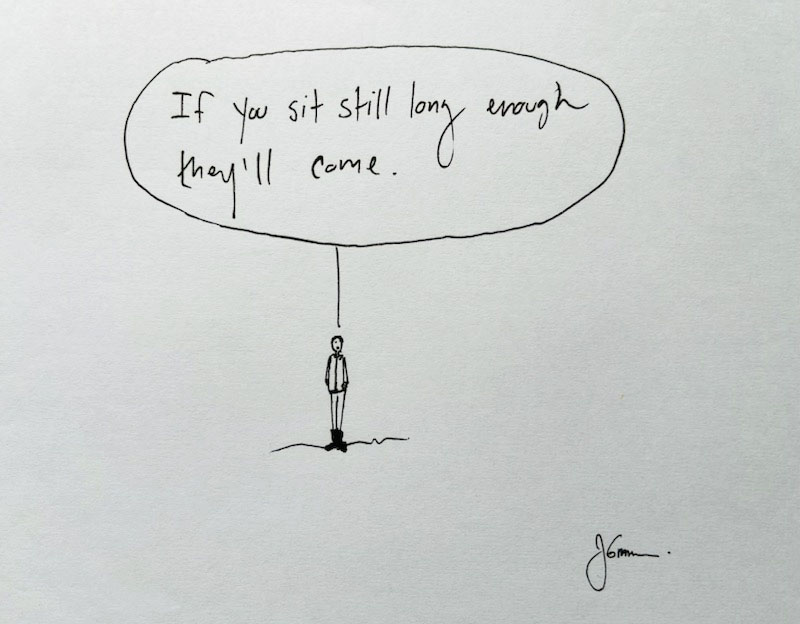 If you sit still long enough
they'll come.